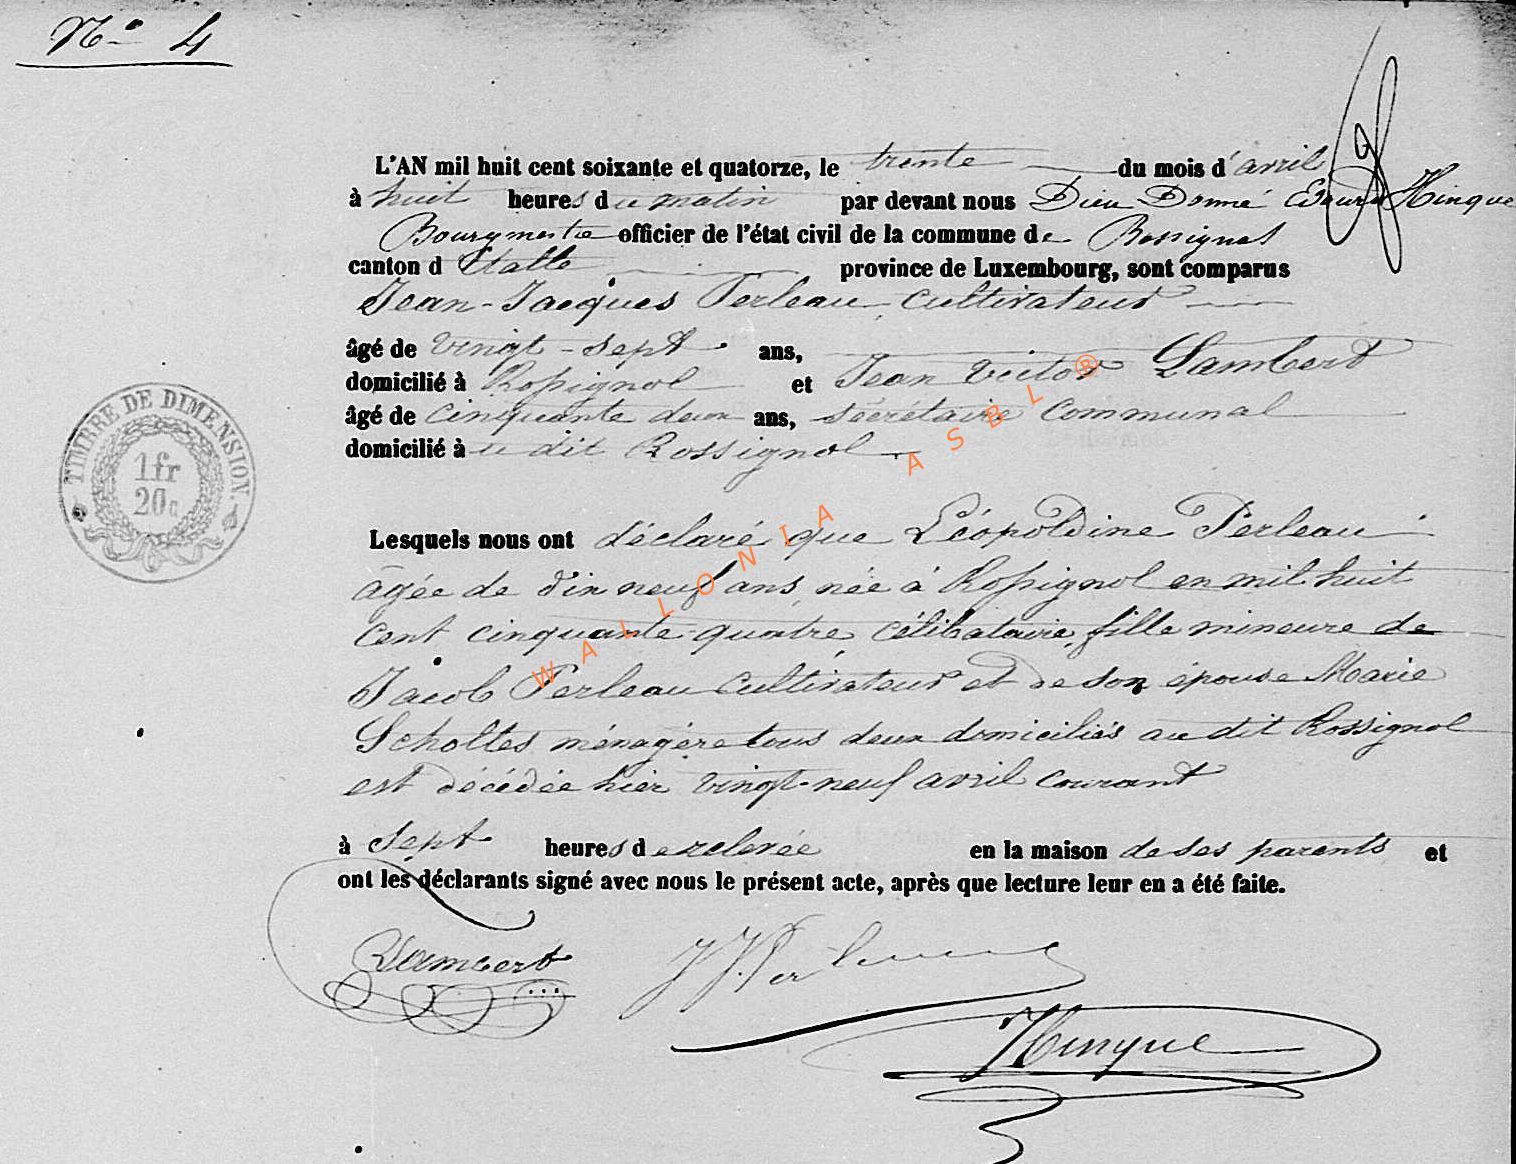 N° 4
L'AN mil huit cent soixante et quatorze, le trente du mois d'avril
à huit heures du matin par devant nous Dieu Donné Edourd Hinque
Bourgmestre officier de l'état civil de la commune de Rossignol
canton d'Etalle province de Luxembourg, sont comparus
Jean-Jacques Perleau, cultivateur
âgé de vingt-sept ans,
domicilié à Rossignol et Jean Victor Lambert
âgé de cinquante deux ans, sécrétaire communal
domicilié à u dit Rossignol
TIMBRE DE DIMENSION.
1fr
20c
Lesquels nous ont déclaré que Léopoldine Perleau
âgée de dix neuf ans, née à Rossignol en mil huit
cent cinquante-quatre, célibataire, fille mineure de
Jacob Perleau cultivateur et de son épouse Marie
Scholtes ménagère tous deux domiciliés au dit Rossignol
est décédée hier vingt-neuf avril courant
à sept heures de relevée en la maison de ses parents et
ont les déclarants signé avec nous le présent acte, après que lecture leur en a été faite.
Lambert J J. Perleau
Hinque
WALLONIA ASBL ®